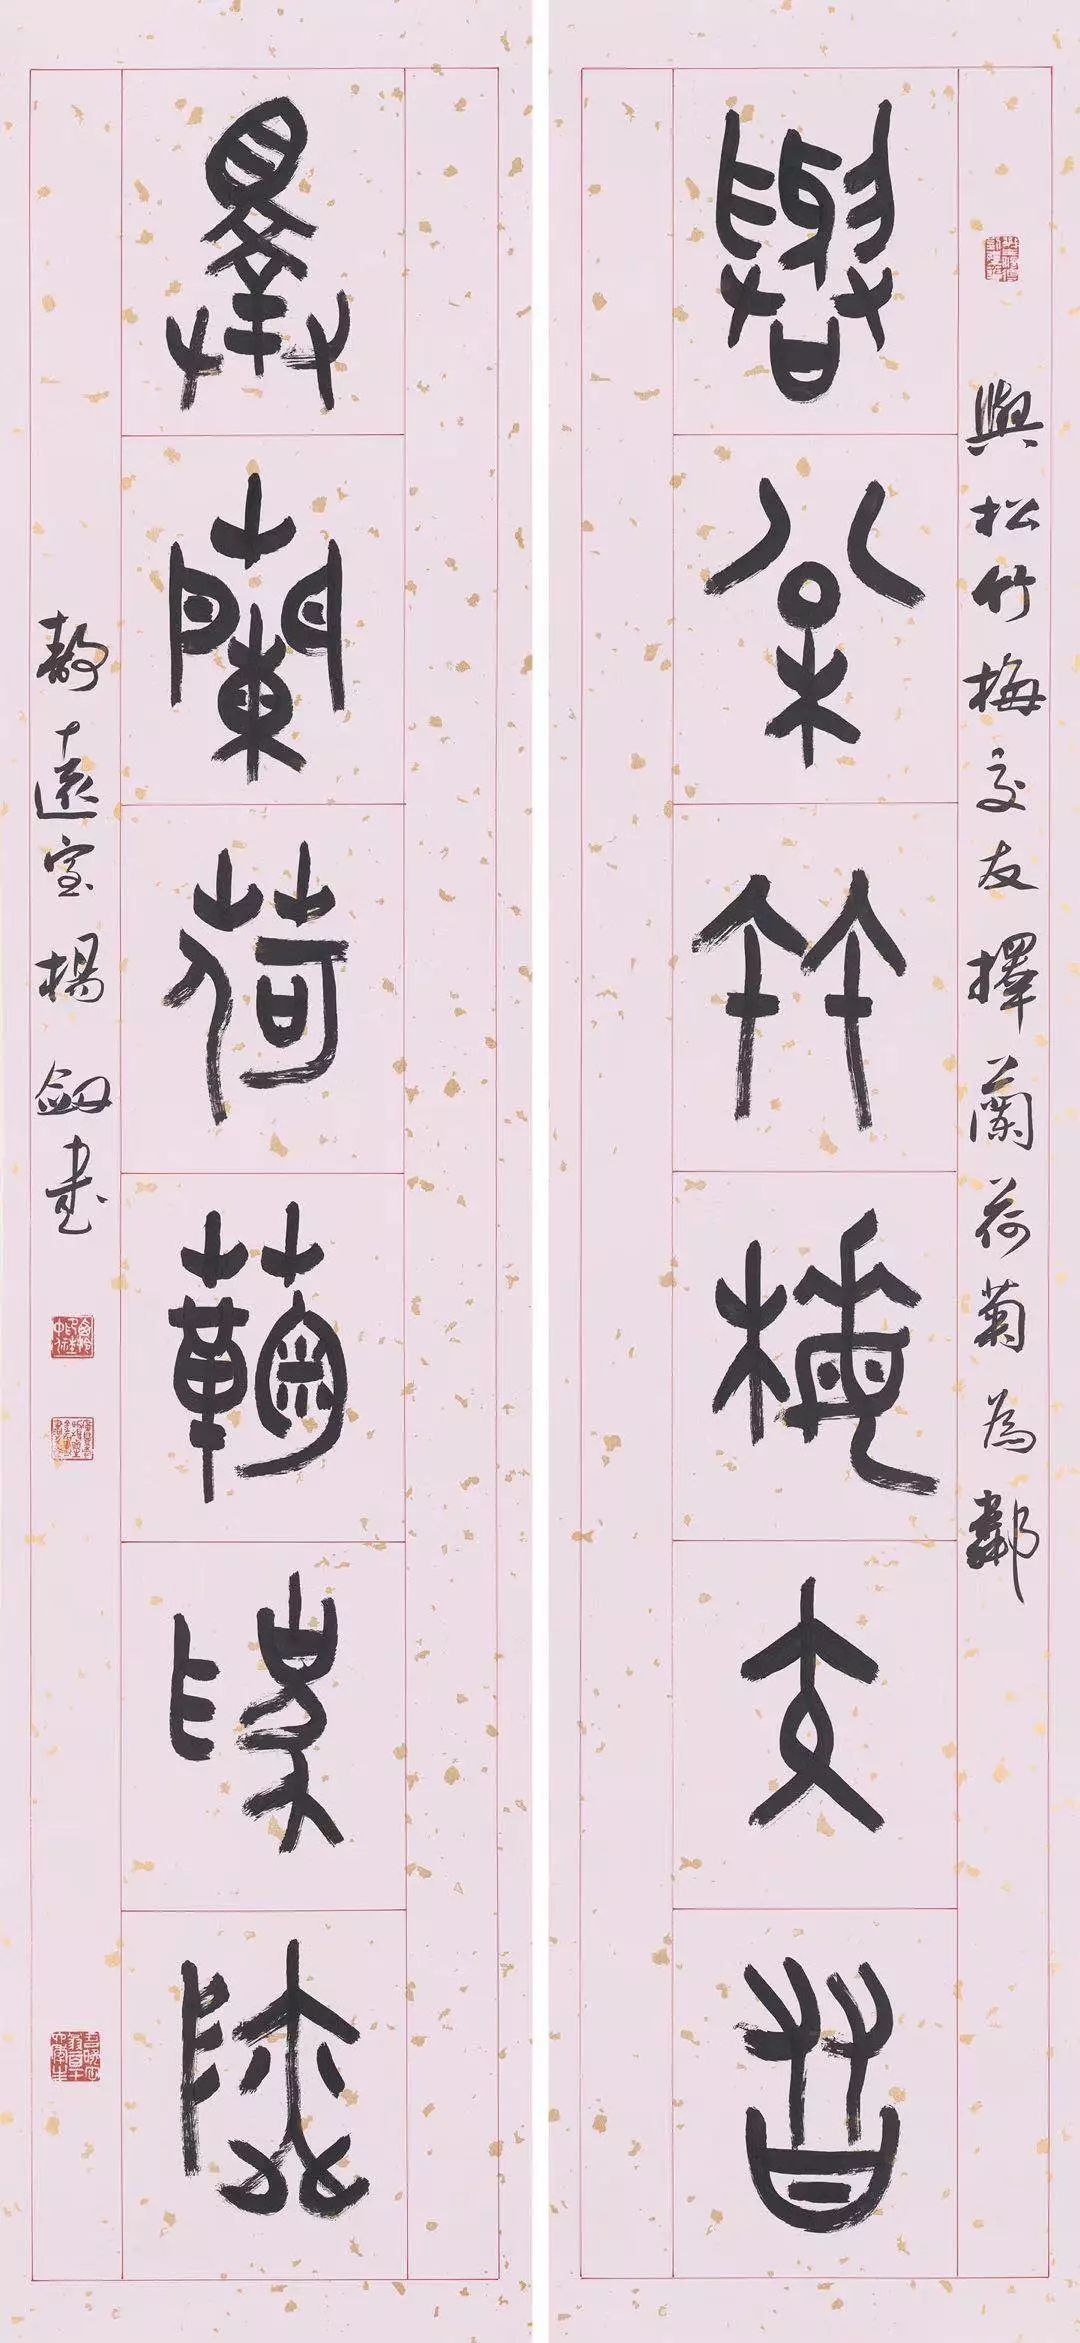 與松竹梅交友
與松竹梅交友擇蘭荷菊為鄰
擇蘭荷菊為鄰
靜遠室楊劍書